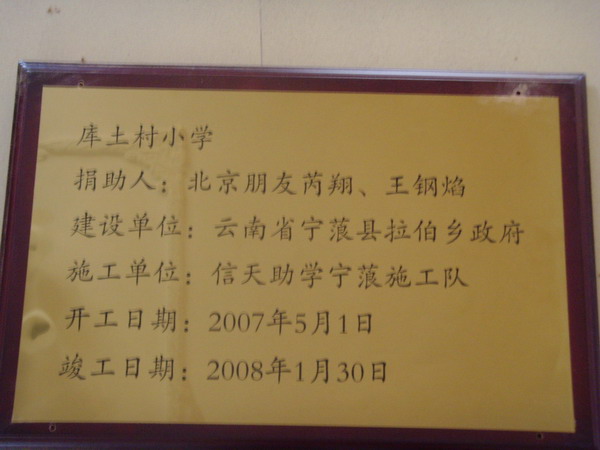 库土村小学
捐助人：北京朋友芮翔、王钢焰
建设单位：云南省宁蒗县拉伯乡政府
施工单位：信天助学宁蒗施工队
开工日期：2007年5月1日
竣工日期：2008年1月30日